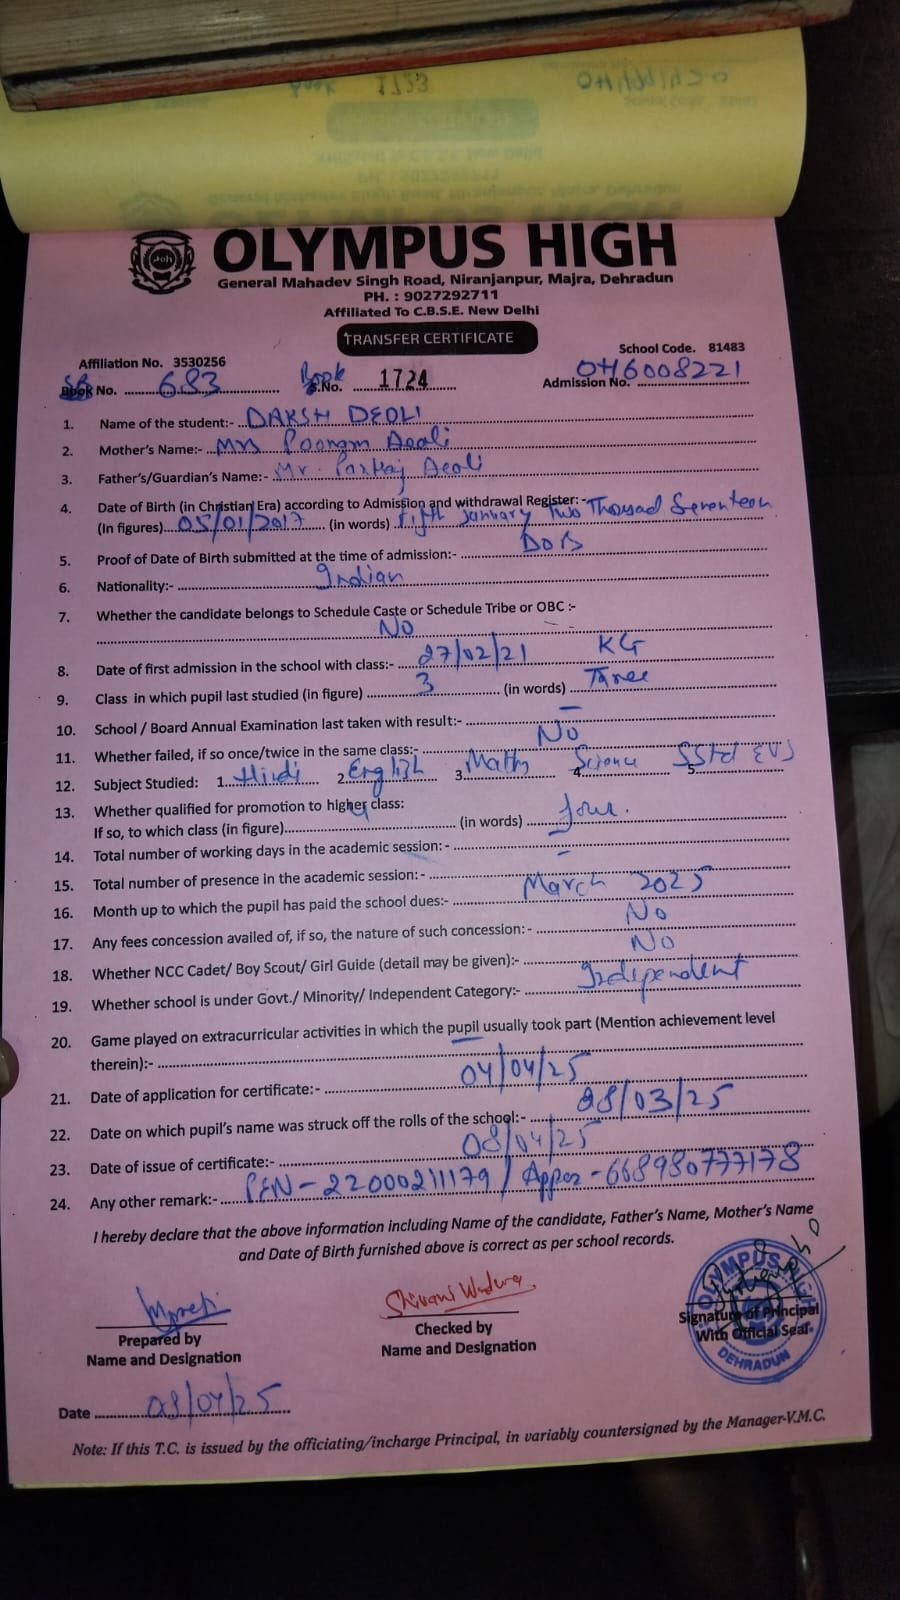 OLYMPUS HIGH
General Mahadev Singh Road, Niranjanpur, Majra, Dehradun
PH. : 9027292711
Affiliated To C.B.S.E. New Delhi
TRANSFER CERTIFICATE
Affiliation No. 3530256 School Code. 81483
SR No. 683 Book S.No. 1724 Admission No. OH6008221
1. Name of the student:- DAKSH DEOLI
2. Mother's Name:- Mrs Poonam Deoli
3. Father's/Guardian's Name:- Mr. Pankaj Deoli
4. Date of Birth (in Christian Era) according to Admission and withdrawal Register:-
(In figures) 05/01/2017 (in words) Fifth January Two Thousad Seventeen
5. Proof of Date of Birth submitted at the time of admission:- DOB
6. Nationality:- Indian
7. Whether the candidate belongs to Schedule Caste or Schedule Tribe or OBC :-
No
8. Date of first admission in the school with class:- 27/02/21 KG
9. Class in which pupil last studied (in figure) 3 (in words) Three
10. School / Board Annual Examination last taken with result:- –
11. Whether failed, if so once/twice in the same class:- No
12. Subject Studied: 1. Hindi 2. English 3. Maths 4. Science 5. SStd EVS
13. Whether qualified for promotion to higher class:
If so, to which class (in figure) 4 (in words) four.
14. Total number of working days in the academic session:- –
15. Total number of presence in the academic session:- –
16. Month up to which the pupil has paid the school dues:- March 2025
17. Any fees concession availed of, if so, the nature of such concession:- No
18. Whether NCC Cadet/ Boy Scout/ Girl Guide (detail may be given):- No
19. Whether school is under Govt./ Minority/ Independent Category:- Independent
20. Game played on extracurricular activities in which the pupil usually took part (Mention achievement level
therein):- –
21. Date of application for certificate:- 04/04/25
22. Date on which pupil's name was struck off the rolls of the school:- 28/03/25
23. Date of issue of certificate:- 08/04/25
24. Any other remark:- PEN-22000211179 / Appar-668980777178
I hereby declare that the above information including Name of the candidate, Father's Name, Mother's Name
and Date of Birth furnished above is correct as per school records.
Shivani Wadwa
Prepared by Checked by Signature of Principal
Name and Designation Name and Designation With Official Seal
OLYMPUS HIGH DEHRADUN
Date 08/04/25
Note: If this T.C. is issued by the officiating/incharge Principal, in variably countersigned by the Manager-V.M.C.